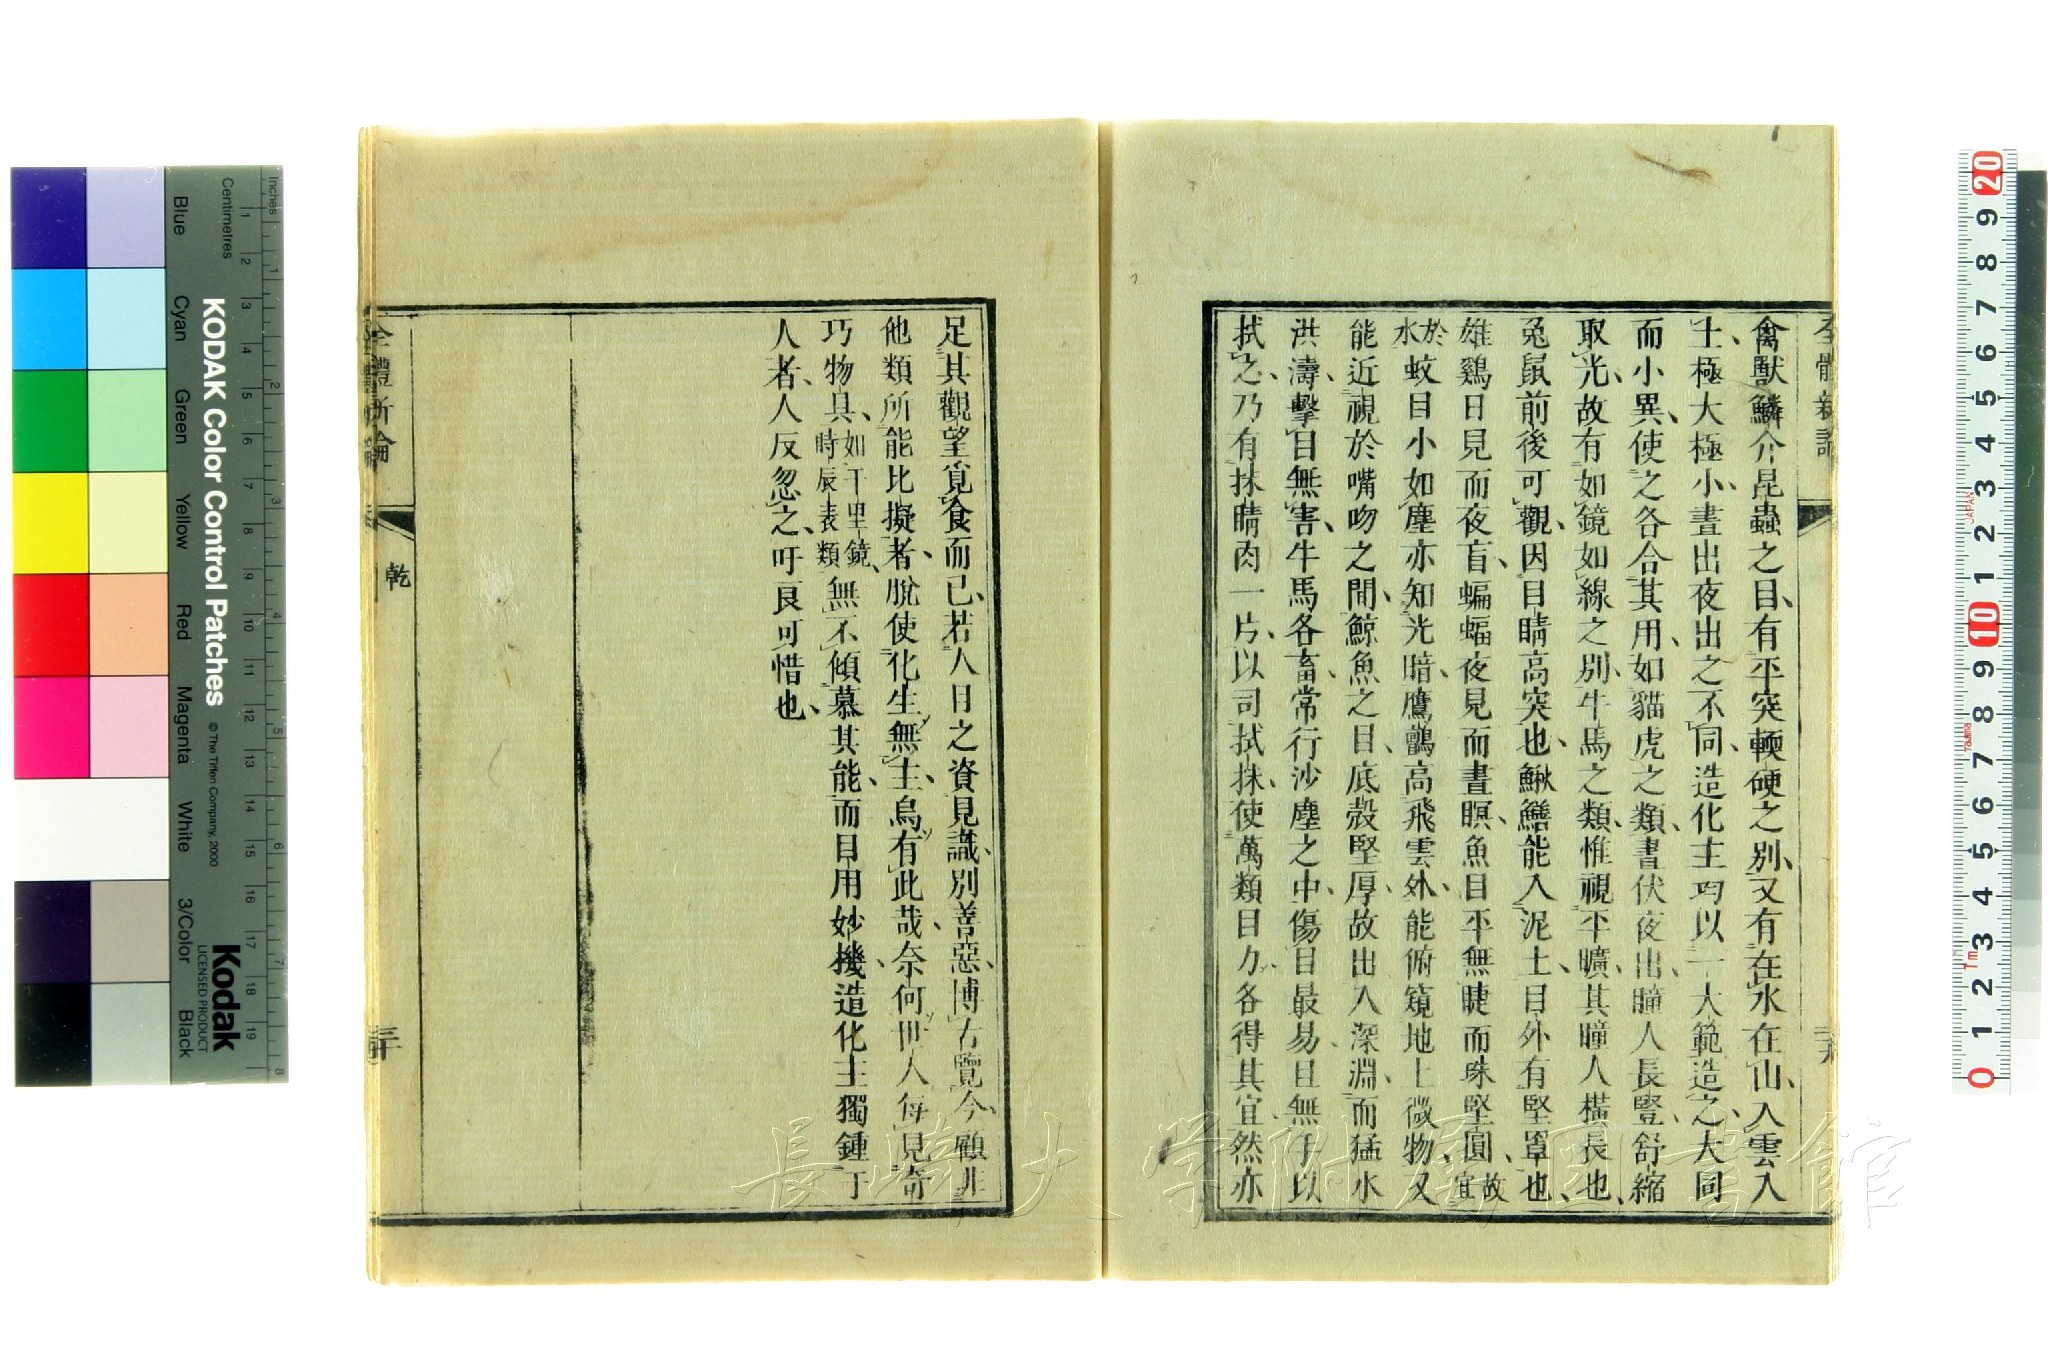 全體新論
禽獸鱗介昆蟲之目、有平突輭硬之別、又有在水在山、入雲入
土、極大極小、晝出夜出之不同、造化主均以一大範造之、大同
而小異、使之各合其用、如貓虎之類、晝伏夜出、瞳人長豎、舒縮
取光、故有如鏡如線之別、牛馬之類、惟視平曠、其瞳人橫長也、
兔鼠前後可觀、因目睛高突也、鰍鱔能入泥土、目外有堅罩也、
雄鷄日見而夜盲、蝙蝠夜見而晝瞑、魚目平無睫而珠堅圓、故宜
於水蚊目小如塵、亦知光暗、鷹鸇高飛雲外、能俯窺地上微物、又
能近視於嘴吻之間、鯨魚之目、底殼堅厚、故出入深淵、而猛水
洪濤、擊目無害、牛馬各畜、常行沙塵之中、傷目最易、且無手以
拭之、乃有抹睛肉一片、以司拭抹、使萬類目力、各得其宜、然亦
足其觀望覓食而已、若人目之資見識、別善惡、博古覽今、顧非
他類所能比擬者、脫使化生無主、烏有此哉、奈何世人每見奇
巧物具、如千里鏡、時辰表類無不傾慕其能、而目用妙機、造化主獨鍾于
人者、人反忽之、吁良可惜也、
全體新論
乾
三十
長崎大学附属図書館
Inches
Centimetres
KODAK Color Control Patches
© The Tiffen Company, 2000
Blue
Cyan
Green
Yellow
Red
Magenta
White
3/Color
Black
Kodak
LICENSED PRODUCT
JAPAN
Tajima